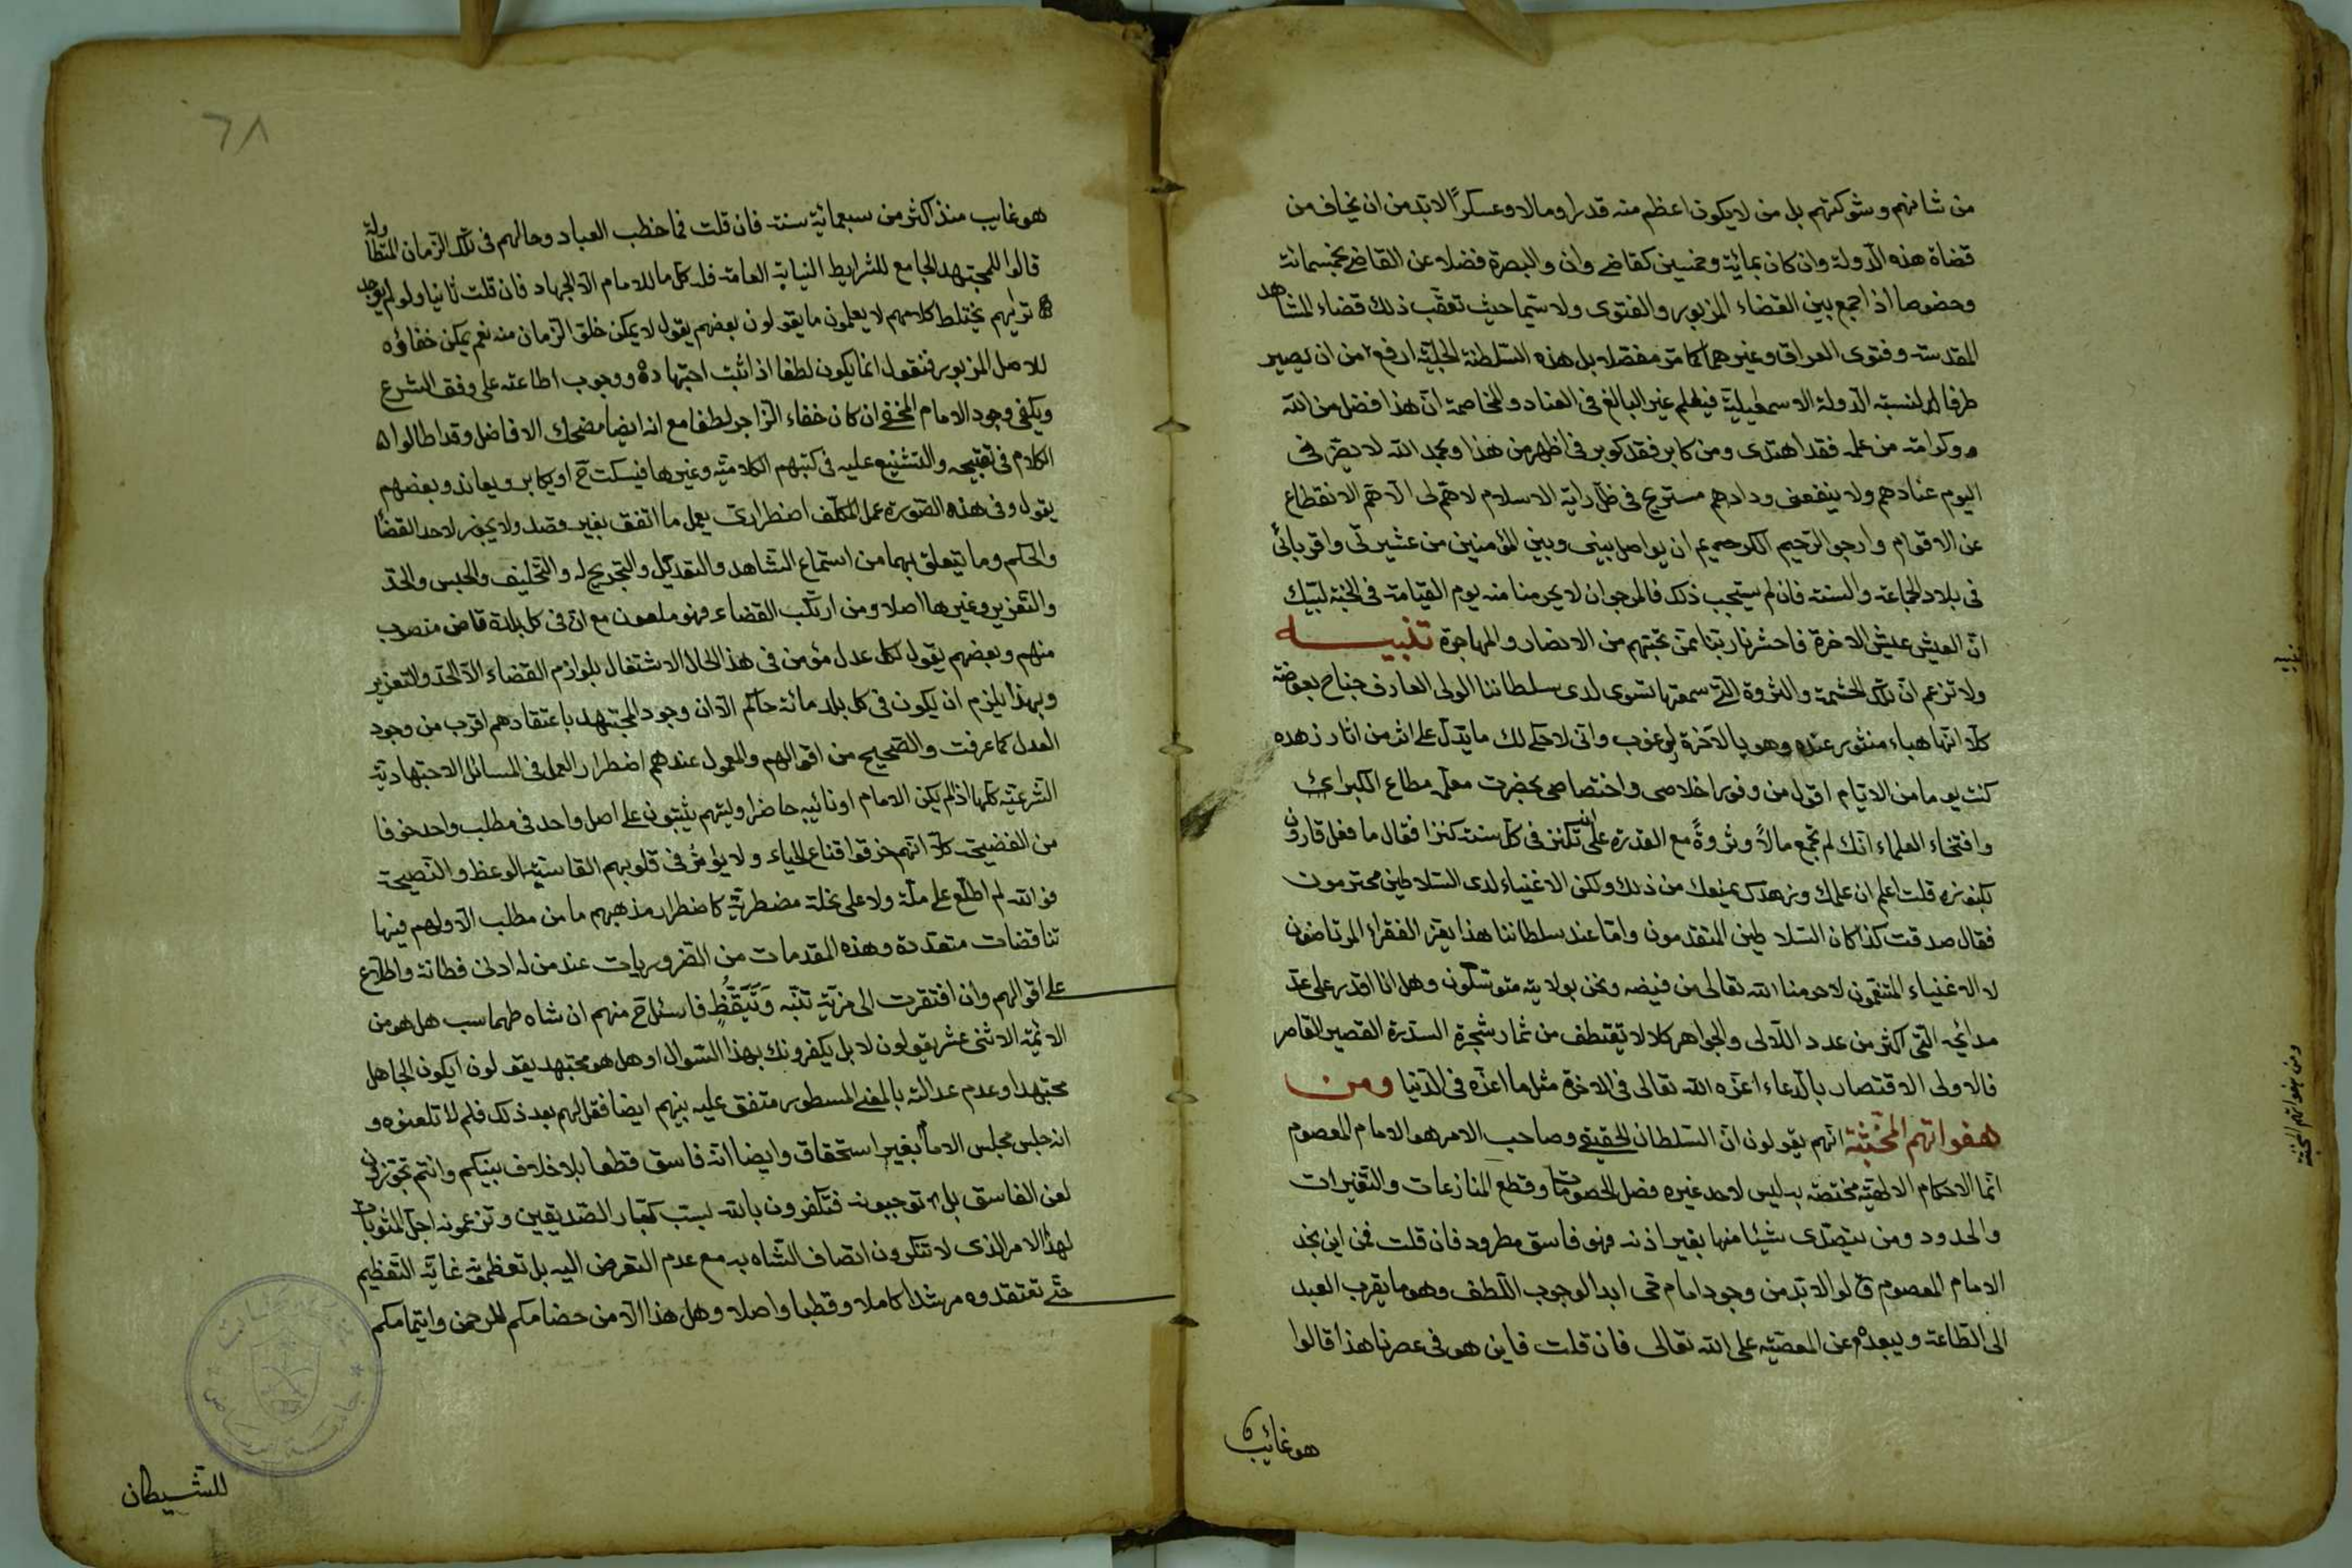 من شانهم وشوكتهم بل من لا يكون اعظم منه قدرا ومالا وعسكرًا لا بد من ان يخاف من
قضاة هذه الدولة وان كان بمائية وخمسين كقاضى وان والبصرة فضلا عن القاضى بخمسمائة
وخصوصا اذا جمع بين القضاء المزبور والفتوى ولا سيما حيث تعقب ذلك قضاء المشاهد
المقدسة وفتوى العراق وغيرهما كما مر مفصلا بل هذه السلطنة الجلية ارفع من ان يصير
طرفا لنسبة الدولة الاسمعيلية فيعلم غير البالغ فى العناد والمخاصمة ان هذا فضل من الله
وكرامة من علمه فقد اهتدى ومن كابر فقد كوبر فى اظهر من هذا وبحمد الله لا يضرنى
اليوم عنادهم ولا ينفعنى ودادهم مستريح فى ظل راية الاسلام لا هم لى الا هم الانقطاع
عن الاقوام وارجو الرحيم الكريم ان يواصل بينى وبين المؤمنين من عشيرتى واقربائى
فى بلاد الجماعة والسنة فان لم يستجب ذلك فالمرجو ان لا يحرمنا منه يوم القيامة فى الجنة لبيك
ان العيش عيش الاخرة فاحشرنا ربنا مع من تحبهم من الانصار والمهاجرة تنبيه
ولا تزعم ان تلك الحشمة والثروة التى سمعتها تسوى لدى سلطاننا الولى العارف جناح بعوضة
كلا انها هباء منثور عنده وهو بالآخرة لرغوب وانى لاحكى لك ما يدل على اثر من اثار زهده
كنت يوما من الايام اقول من وفور اخلاصى واختصاصى بحضرت معلمه مطاع الكبراء
وافتخار العلماء انك لم تجمع مالاً وثروةً مع القدرة على ان تكنز فى كل سنة كنزا فقال ما فعل قارون
بكنوزه قلت اعلم ان علمك وزهدك يمنعك من ذلك ولكن الاغنياء لدى السلاطين محترمون
فقال صدقت كذا كان السلاطين المتقدمون واما عند سلطاننا هذا يعز الفقراء المرتاضون
لا الاغنياء المتنعمون لا حرمنا الله تعالى من فيضه ونحن بولايته متوسلون وهل انا اقدر على عد
مدائحه التى اكثر من عدد اللآلى والجواهر كلا لا يقتطف من ثمار شجرة السدرة القصير القاصر
فالاولى الاقتصار بالدعاء اعزه الله تعالى فى الاخرة مثل ما اعزه فى الدنيا ومن
هفواتهم المخبثة انهم يقولون ان السلطان الحقيقى وصاحب الامر هو الامام المعصوم
انما الاحكام الالهية مختصة به ليس لاحد غيره فصل الخصومات وقطع المنازعات والتغيرات
والحدود ومن يتصدى شيئا منها بغير اذنه فهو فاسق مطرود فان قلت فمن اين نجد
الامام المعصوم قالوا لا بد من وجود امام حى ابدا لوجوب اللطف وهو ما يقرب العبد
الى الطاعة ويبعده عن المعصية على الله تعالى فان قلت فاين هو فى عصرنا هذا قالوا
هو غائب
تنبيه
ومن هفواتهم المخبثة
٦٨
هو غايب منذ اكثر من سبعمائية سنة فان قلت فما خطب العباد وحالهم فى تلك الزمان المتطاولة
قالوا للمجتهد الجامع للشرايط النيابة العامة فله كل ما للامام الا الجهاد فان قلت ثانيا ولو لم يوجد
تريهم يختلط كلامهم لا يعلمون ما يقولون بعضهم يقول لا يمكن خلق الزمان منه نعم يمكن خفاؤه
للاصل المزبور فنقول انما يكون لطفا اذا ثبت اجتهاده ووجوب اطاعته على وفق الشرع
ويكفى وجود الامام المخفى ان كان خفاء الزاجر لطفا مع انه ايضا مضحك الافاضل وقد اطالوا
الكلام فى تقبيحه والتشنيع عليه فى كتبهم الكلامية وغيرها فيسكت ح او يكابر ويعاند وبعضهم
يقول وفى هذه الصورة عمل المكلف اضطرارى يعمل ما اتفق بغير قصد ولا يجوز لاحد القضا
والحكم وما يتعلق بهما من استماع الشاهد والتعديل والتجريح له والتحليف والحبس والحد
والتعزير وغيرها اصلا ومن ارتكب القضاء فهو ملعون مع ان فى كل بلدة قاض منصوب
منهم وبعضهم يقول لكل عدل مؤمن فى هذ الحال الاشتغال بلوازم القضاء الا الحد والتعزير
وبهذا يلزم ان يكون فى كل بلد مائة حاكم الا ان وجود المجتهد باعتقادهم اقرب من وجود
العدل كما عرفت والصحيح من اقوالهم والمعمول عندهم اضطرار العمل فى المسائل الاجتهادية
الشرعية كلها اذا لم يكن الامام او نائبه حاضرا وليتهم يثبتون على اصل واحد فى مطلب واحد خوفا
من الفضيحة كلا انهم خرقوا قناع الحياء ولا يؤثر فى قلوبهم القاسية الوعظ والنصيحة
فوالله لم اطلع على ملة ولا على نحلة مضطربة كاضطرار مذهبهم ما من مطلب الا ولهم فيها
تناقضات متعددة وهذه المقدمات من الضروريات عند من له ادنى فطانة واطلاع
على اقوالهم وان افتقرت الى مزية تنبّه وَتَيَقُّظٍ فاسئل ح منهم ان شاه طهماسب هل هو من
الائمة الاثنى عشر يقولون لا بل يكفرونك بهذا السوال او هل هو مجتهد يقولون ايكون الجاهل
مجتهدا وعدم عدالته بالمعنى المسطور متفق عليه بينهم ايضا فقل لهم بعد ذلك فلم لا تلعنوه و
انه جلس مجلس الامام بغير استحقاق وايضا انه فاسق قطعا بلا خلاف بينكم وانتم تجوزون
لعن الفاسق بل توجبونه فتكفرون بالله بسب كبار الصديقين وتزعمونه اجل المثوبات
لهذا الامر الذى لا تنكرون اتصاف الشاه به مع عدم التعرض اليه بل تعظمونه غاية التعظيم
حتى تعتقدوه مرشدا كاملا وقطبا واصلا وهل هذا الا من خصامكم للرحمن وايتمامكم
للشيطان